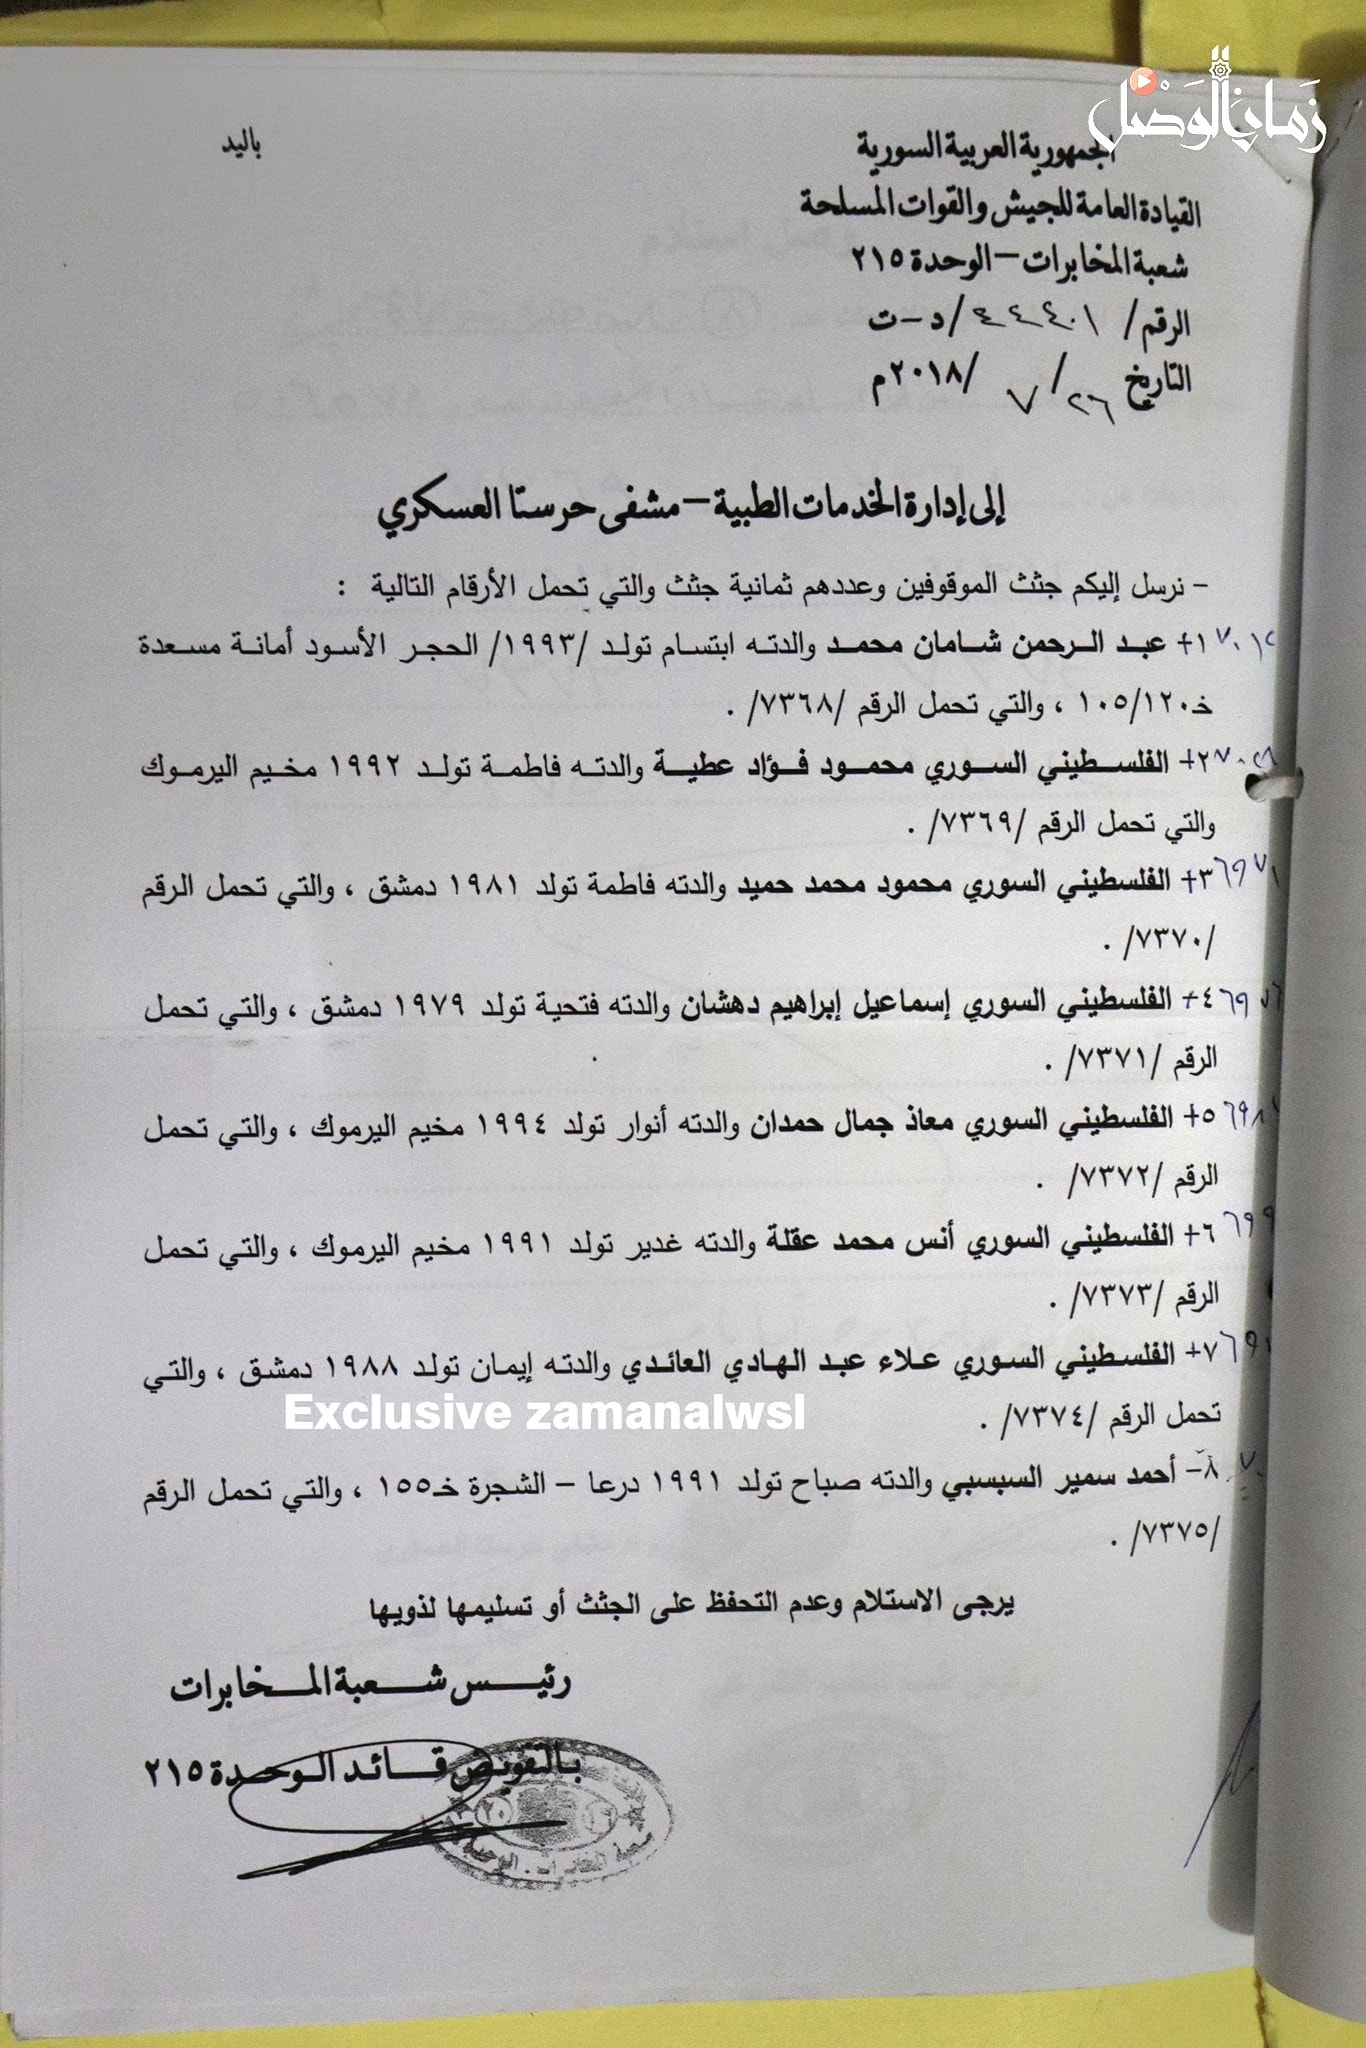 زمان الوصل
باليد
الجمهورية العربية السورية
القيادة العامة للجيش والقوات المسلحة
شعبة المخابرات – الوحدة ٢١٥
الرقم / /د-ت
التاريخ ٢٦/ ٧ /٢٠١٨م
إلى إدارة الخدمات الطبية – مشفى حرستا العسكري
- نرسل إليكم جثث الموقوفين وعددهم ثمانية جثث والتي تحمل الأرقام التالية :
١+ عبد الرحمن شامان محمد والدته ابتسام تولد /١٩٩٣/ الحجر الأسود أمانة مسعدة
خـ١٠٥/١٢٠ ، والتي تحمل الرقم /٧٣٦٨/ .
٢+ الفلسطيني السوري محمود فؤاد عطية والدته فاطمة تولد ١٩٩٢ مخيم اليرموك
والتي تحمل الرقم /٧٣٦٩/ .
٣+ الفلسطيني السوري محمود محمد حميد والدته فاطمة تولد ١٩٨١ دمشق ، والتي تحمل الرقم
/٧٣٧٠/ .
٤+ الفلسطيني السوري إسماعيل إبراهيم دهشان والدته فتحية تولد ١٩٧٩ دمشق ، والتي تحمل
الرقم /٧٣٧١/ .
٥+ الفلسطيني السوري معاذ جمال حمدان والدته أنوار تولد ١٩٩٤ مخيم اليرموك ، والتي تحمل
الرقم /٧٣٧٢/ .
٦+ الفلسطيني السوري أنس محمد عقلة والدته غدير تولد ١٩٩١ مخيم اليرموك ، والتي تحمل
الرقم /٧٣٧٣/ .
٧+ الفلسطيني السوري علاء عبد الهادي العائدي والدته إيمان تولد ١٩٨٨ دمشق ، والتي
تحمل الرقم /٧٣٧٤/ .
Exclusive zamanalwsl
٨- أحمد سمير السبسبي والدته صباح تولد ١٩٩١ درعا – الشجرة خـ١٥٥ ، والتي تحمل الرقم
/٧٣٧٥/ .
يرجى الاستلام وعدم التحفظ على الجثث أو تسليمها لذويها
رئيس شعبة المخابرات
بالتفويض قائد الوحدة ٢١٥